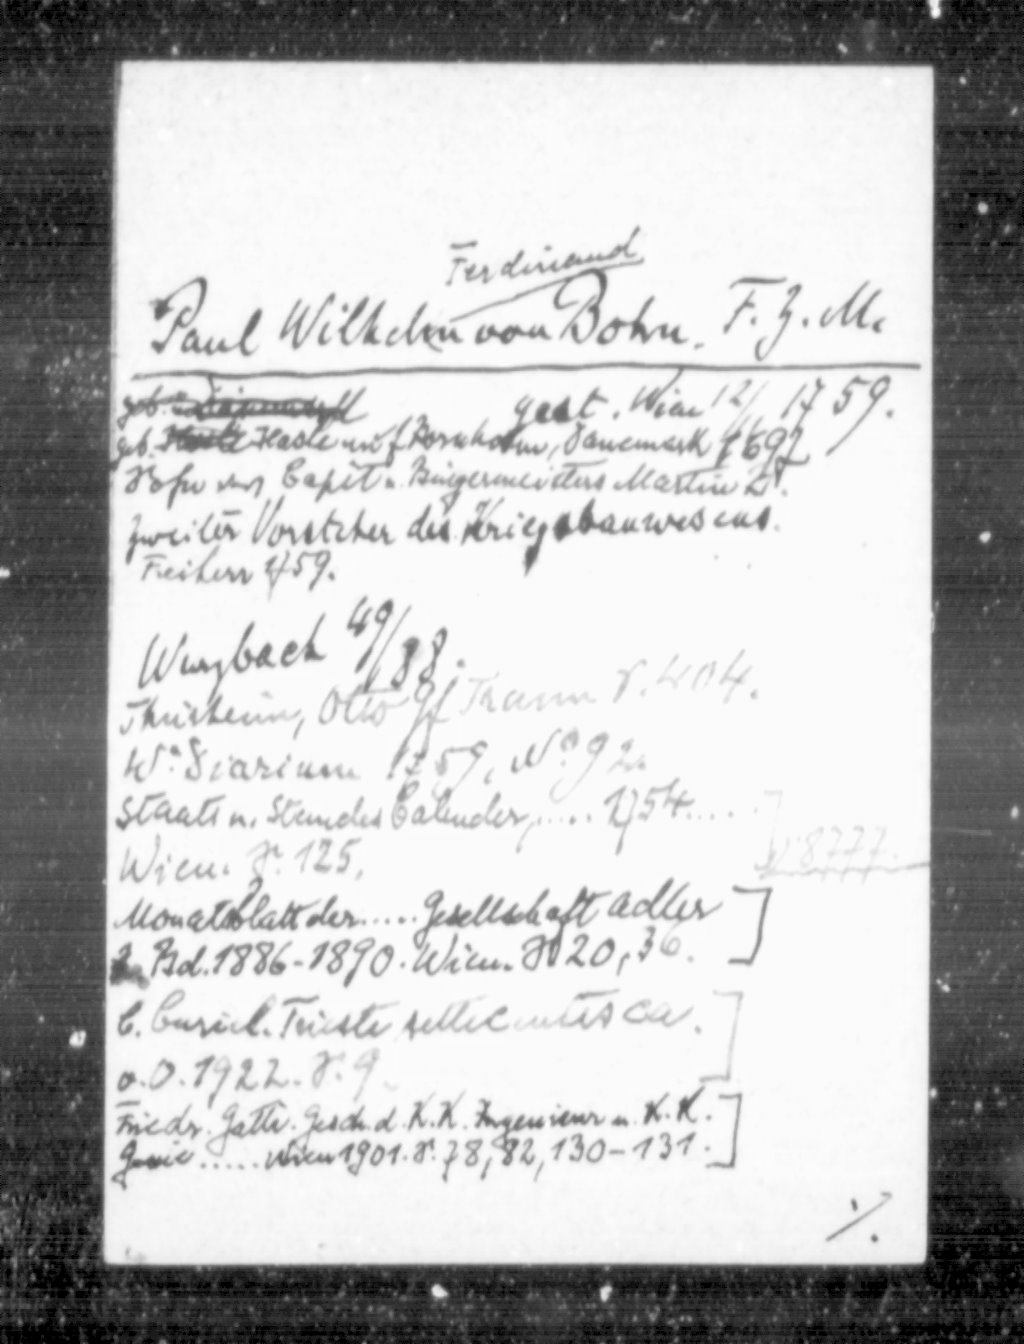 Ferdinand
Paul Wilhelm von Bohn. F. Z. M.
geb. gest. Wien 12/ 1759.
geb. Hasle auf Bornholm, Dänemark 1697
Sohn des Capit. u. Bürgermeisters Martin B.
Zweiter Vorsteher des Kriegsbauwesens.
Freiherr 1759.
Wurzbach 49/88.
Thürheim, Otto Gf Traun S. 404.
Wr. Diarium 1759, No. 92.
Staats u. Standes Calender, ..... 1754.....
Wien. S. 125.
V. 8777.
Monatsblatt der ..... Gesellschaft Adler
Bd. 1886-1890. Wien. S. 20, 36.
C. Curiel. Trieste settecentesca.
o. O. 1922. S. 9.
Friedr. Gatti. Gesch. d. K. K. Ingenieur u. K. K.
Genie ..... Wien 1901. S. 78, 82, 130-131.
./.